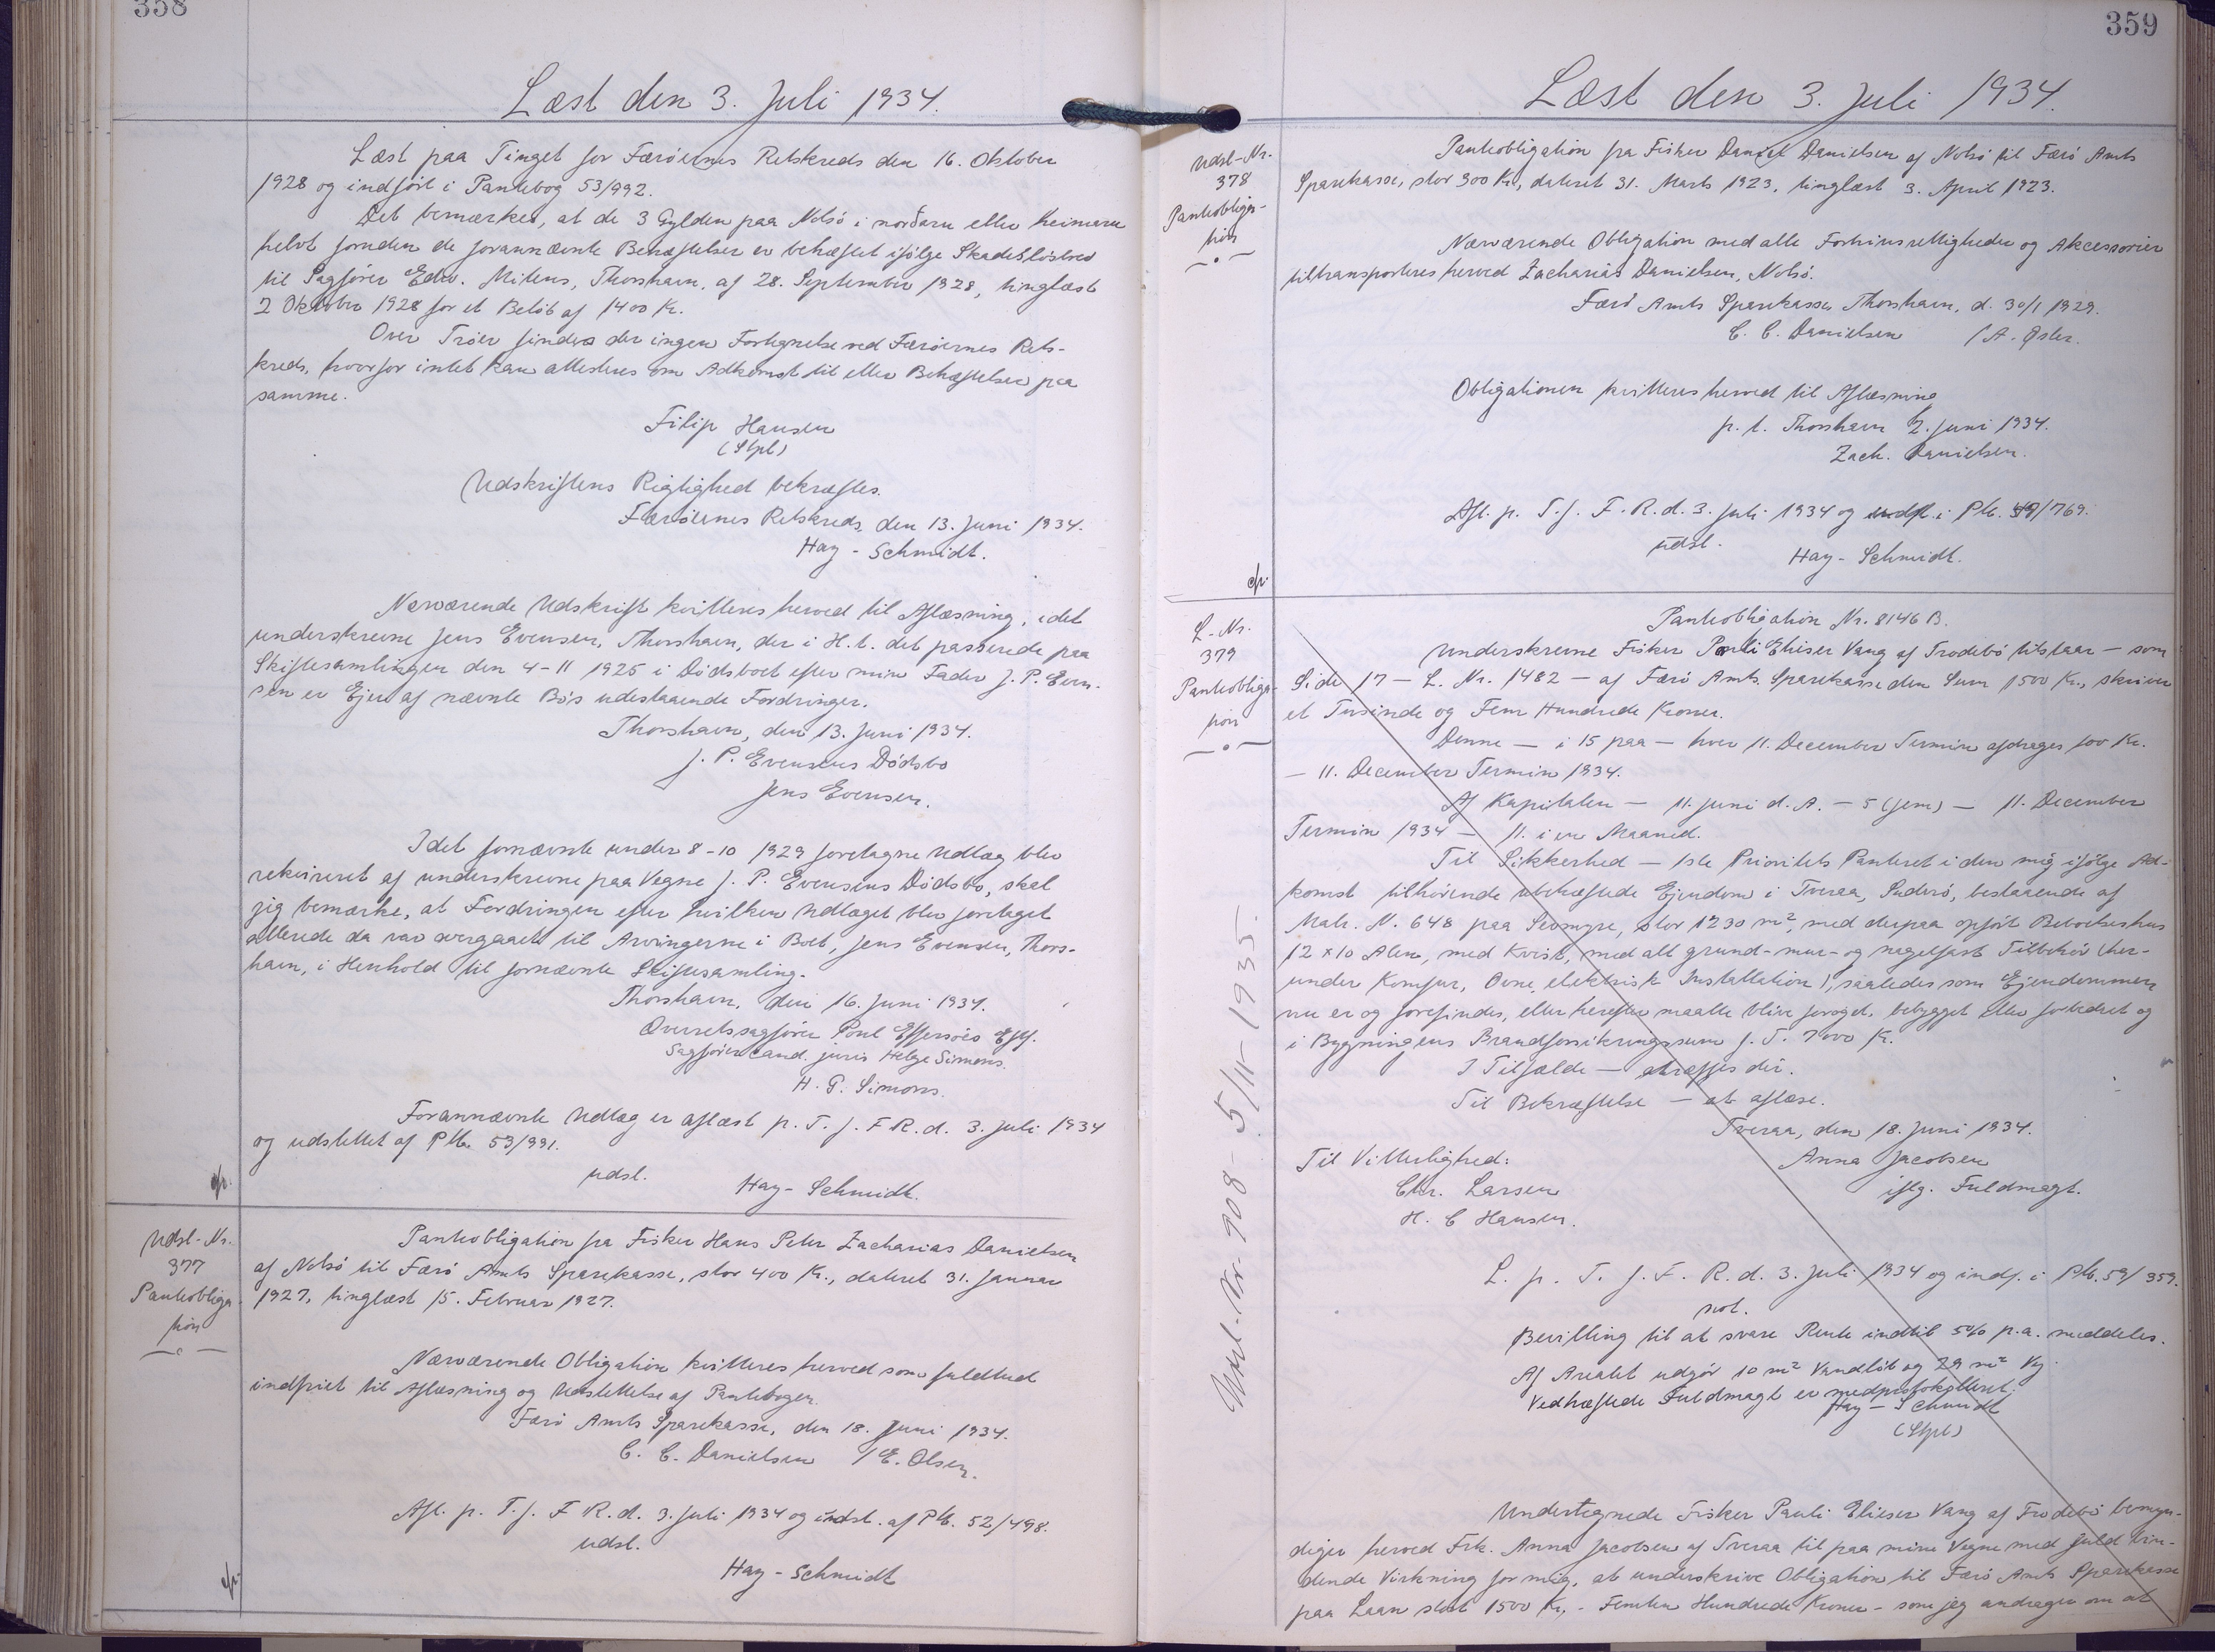 358
Læst den 3. Juli 1934.
Læst paa Tinget for Færøernes Retskreds den 16. Oktober
1928 og indført i Pantebog 53/992.
Det bemærkes, at de 3 Gylden paa Nolsö i norðaru eller heimaru
helvt foruden de forannævnte Behæftelser er behæftet ifölge Skadesløsbrev
til Sagfører Edw. Mitens, Thorshavn, af 28. September 1928, tinglæst
2 Oktober 1928 for et Beløb af 1400 Kr.
Over Tróer findes der ingen Fortegnelse ved Færøernes Rets-
kreds, hvorfor intet kan attesteres om Adkomst til eller Behæftelser paa
samme.
Filip Hansen
(Stpl)
Udskriftens Rigtighed bekræftes.
Færøernes Retskreds, den 13. Juni 1934.
Hay-Schmidt.
Nærværende Udskrift kvitteres herved til Aflæsning, idet
underskrevne Jens Evensen, Thorshavn, der i H.t. det passerede paa
Skiftesamlingen den 4-11 1925 i Dødsboet efter min Fader J. P. Even-
sen er Ejer af nævnte Bo's udestaaende Fordringer.
Thorshavn, den 13. Juni 1934.
J. P. Evensens Dödsbo
Jens Evensen.
Idet fornævnte under 8-10 1929 foretagne Udlæg blev
rekvireret af underskrevne paa Vegne J. P. Evensens Dödsbo, skal
jeg bemærke, at Fordringen efter hvilken Udlæget blev foretaget
allerede da var overgaaet til Arvingerne i Boet, Jens Evensen, Thors-
havn, i Henhold til fornævnte Skiftesamling.
Thorshavn, den 16. Juni 1934.
Overretssagfører Poul Effersöes Eftf.
Sagfører cand. juris Helge Simons.
H. G. Simons.
Forannævnte Udlæg er aflæst p. T. f. F R. d. 3. Juli 1934
og udslettet af Ptb. 53/991.
udsl.
Hay-Schmidt.
cfr.
Udsl-Nr.
377
Pantobliga-
tion
Pantobligation fra Fisker Hans Peter Zacharias Danielsen
af Nolsö til Færö Amts Sparekasse, stor 400 Kr., dateret 31. Januar
1927, tinglæst 15. Februar 1927.
Nærværende Obligation kvitteres herved som fuldtud
indfriet til Aflæsning og Udslettelse af Pantebogen.
Færö Amts Sparekasse, den 18. Juni 1934.
C. C. Danielsen /E. Olsen.
Afl. p. T. f. F R. d. 3. Juli 1934 og udsl. af Ptb. 52/498.
udsl.
Hay-Schmidt
cfr.
359
Læst den 3. Juli 1934.
Udsl-Nr.
378
Pantobliga-
tion
Pantobligation fra Fisker Daniel Danielsen af Nolsö til Færö Amts
Sparekasse, stor 300 Kr, dateret 31. Marts 1923, tinglæst 3. April 1923.
Nærværende Obligation med alle Fortrinsrettigheder og Akcessorier
tiltransporteres herved Zacharias Danielsen, Nolsö.
Færö Amts Sparekasse, Thorshavn, d. 30/1 1929.
C. C. Danielsen /A.
Obligationen kvitteres herved til Aflæsning
p. t. Thorshavn 2. Juni 1934.
Zach. Danielsen.
Afl. p. T. f. F. R. d. 3. Juli 1934 og i Ptb. 49/769.
udsl.
Hay-Schmidt.
cfr.
L-Nr.
379
Pantobliga-
tion
Pantobligation Nr. 8146 B.
Underskrevne Fisker Pauli Elieser Vang af Frodebö tilstaar — som
Side 17 — L. Nr. 1482 — af Færö Amts Sparekasse den Sum 1500 Kr., skriver
et Tusinde og Fem Hundrede Kroner.
Denne — i 15 paa — hver 11. December Termin afdrages 100 Kr.
— 11. December Termin 1934.
Af Kapitalen — 11. Juni d. A. — 5 (fem) — 11. December
Termin 1934 — 11. i en Maaned.
Til Sikkerhed — 1ste Prioritets Panteret i den mig ifölge Ad-
komst tilhörende ubehæftede Ejendom i Tveraa, Suderö, bestaaende af
Matr. N. 648 paa stor 1230 m², med derpaa opfört Beboelseshus
12 x 10 Alen, med Kvist, med alt grund-mur- og nagelfast Tilbehör (her-
under Komfur, Ovne, elektrisk Installation), saaledes som Ejendommen
nu er og forefindes, eller herefter maatte blive foröget, bebygget eller forbedret og
i Bygningens Brandforsikringssum f. T. 7000 K.
I Tilfælde — atræffes dér.
Til Bekræftelse — at aflæse.
Tveraa, den 18. Juni 1934.
Til Vitterlighed:
Anna Jacobsen
Chr. Larsen
iflg. Fuldmagt.
H. C Hansen.
L. p. T. f. F. R. d. 3. Juli 1934 og indf. i Ptb. 59/359.
not.
Bevilling til at svare Rente indtil 5% p.a. meddeles.
Af Arealet udgör 10 m² Vandlöb og 29 m² Vej.
Vedhæftede Fuldmagt er medprotokolleret.
Hay-Schmidt
(Stpl)
Undertegnede Fisker Pauli Elieser Vang af Frodebö bemyn-
diger herved Frk. Anna Jacobsen af Tveraa til paa mine Vegne med fuld bin-
dende Virkning for mig, at underskrive Obligation til Færö Amts Sparekasse
paa Laan stort 1500 Kr, - Femten Hundrede Kroner - som jeg andrager om at
Udsl.-Nr. 908 - 5/11-1935.